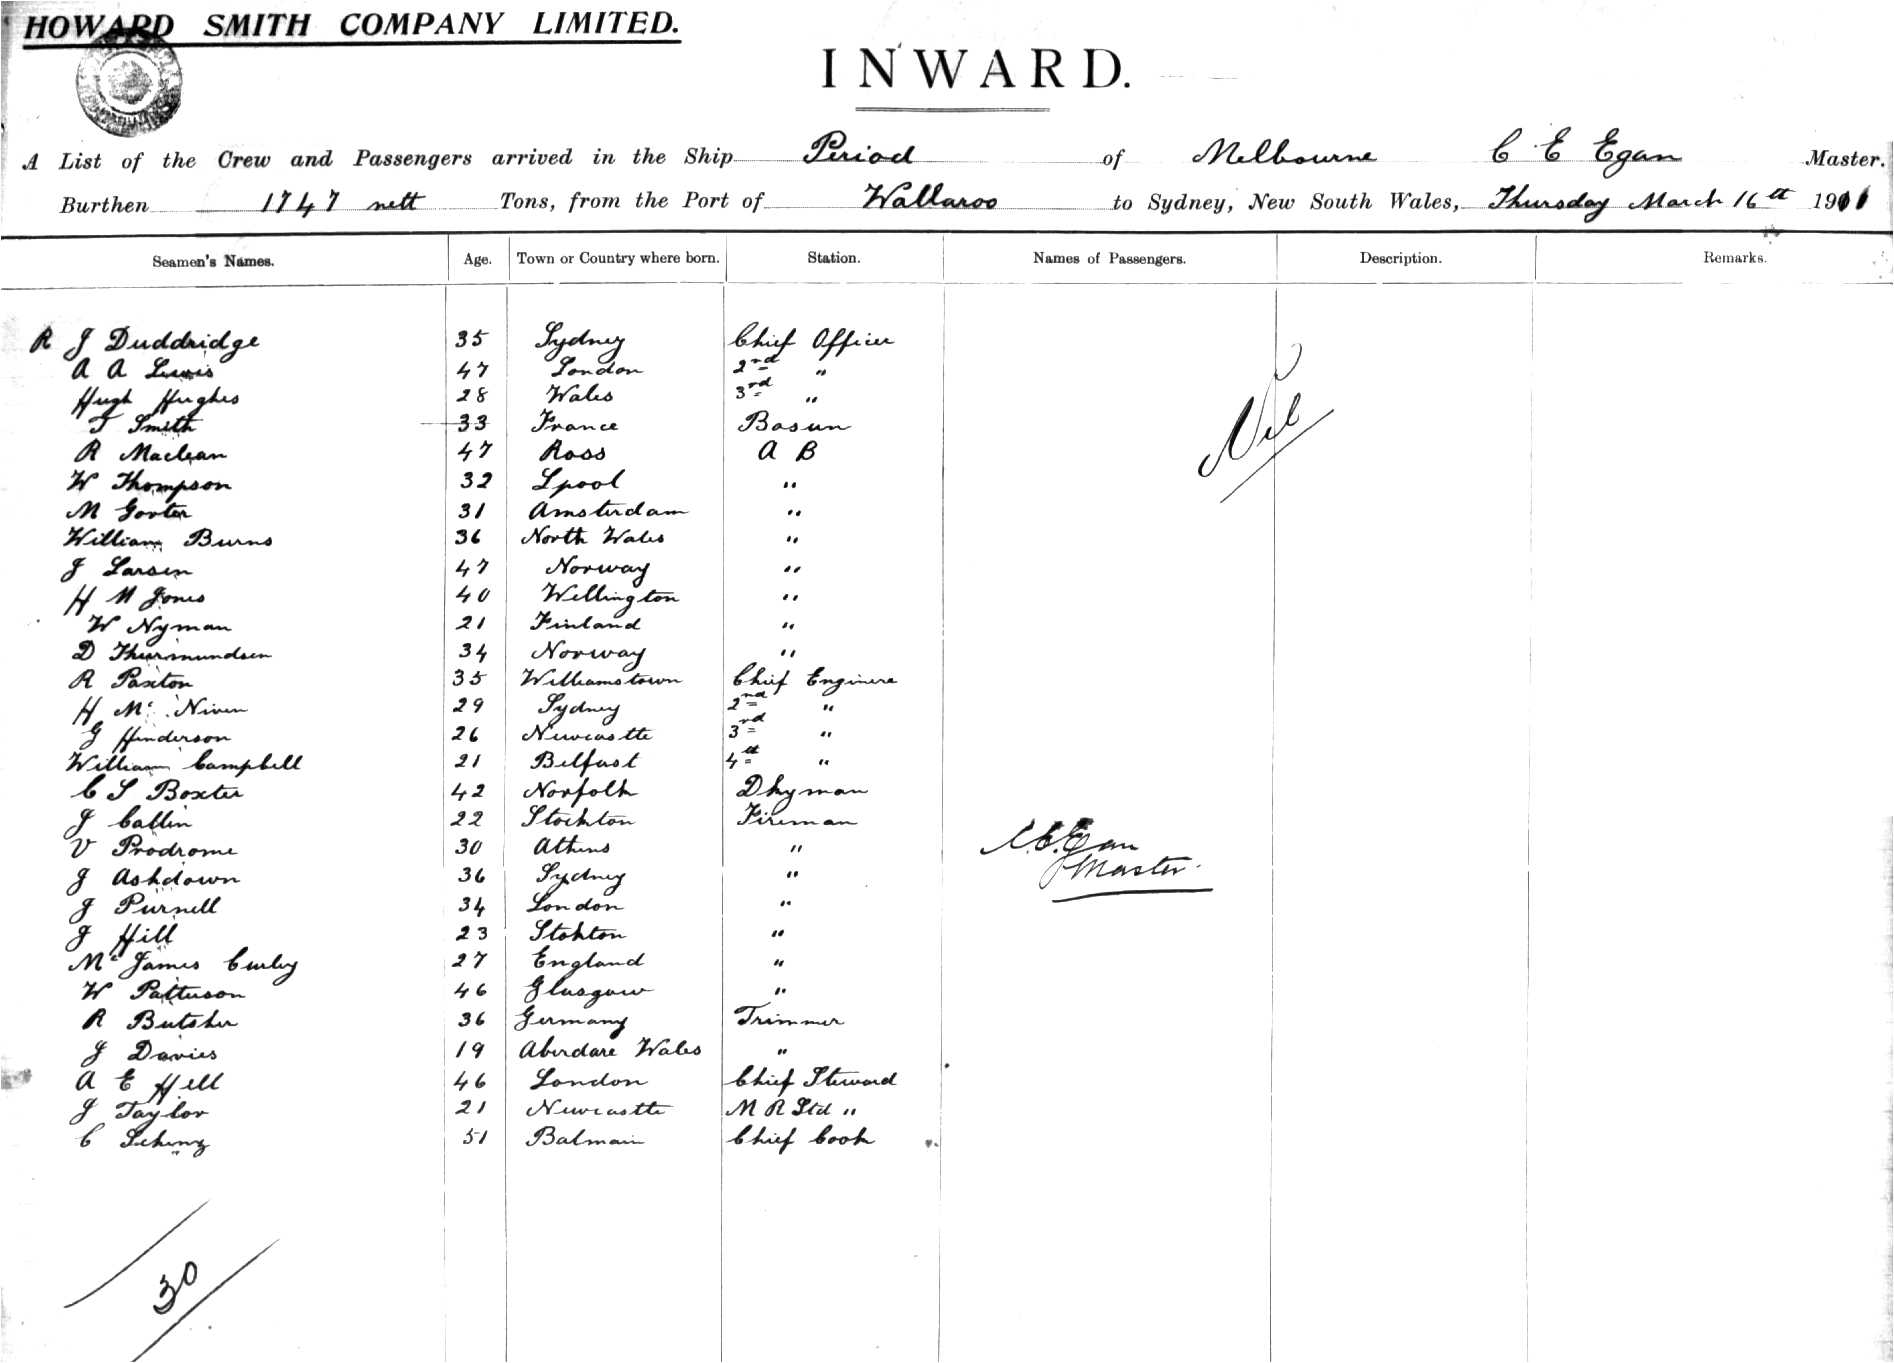 HOWARD SMITH COMPANY LIMITED.
INWARD.
A List of the Crew and Passengers arrived in the Ship Period of Melbourne C E Egan Master.
Burthen 1747 nett Tons, from the Port of Wallaroo to Sydney, New South Wales, Thursday March 16th 1911
Seamen's Names. Age. Town or Country where born. Station. Names of Passengers. Description. Remarks.
R J Duddridge 35 Sydney Chief Officer
A A Lewis 47 London 2nd "
Hugh Hughes 28 Wales 3rd "
T Smith 33 France Bosun
R Maclean 47 Ross A B
Nil
W Thompson 32 Lpool "
M Gorter 31 Amsterdam "
William Burns 36 North Wales "
J Larsen 47 Norway "
H M Jones 40 Wellington "
W Nyman 21 Finland "
D Thurmundsen 34 Norway "
R Paxton 35 Williamstown Chief Enginere
H Mc Niven 29 Sydney 2nd "
G Henderson 26 Newcastle 3rd "
William Campbell 21 Belfast 4th "
C S Boxter 42 Norfolk Dkyman
J Callin 22 Stockton Fireman
V Prodrome 30 Athens "
C.E.Egan
J Ashdown 36 Sydney "
Master.
J Purnell 34 London "
J Hill 23 Stokton "
Mc James Curley 27 England "
W Patterson 46 Glasgow "
R Butcher 36 Germany Trimmer
J Davies 19 Aberdare Wales "
A E Hill 46 London Chief Steward
J Taylor 21 Newcastle M R Std "
C 51 Balmain Chief Cook
30